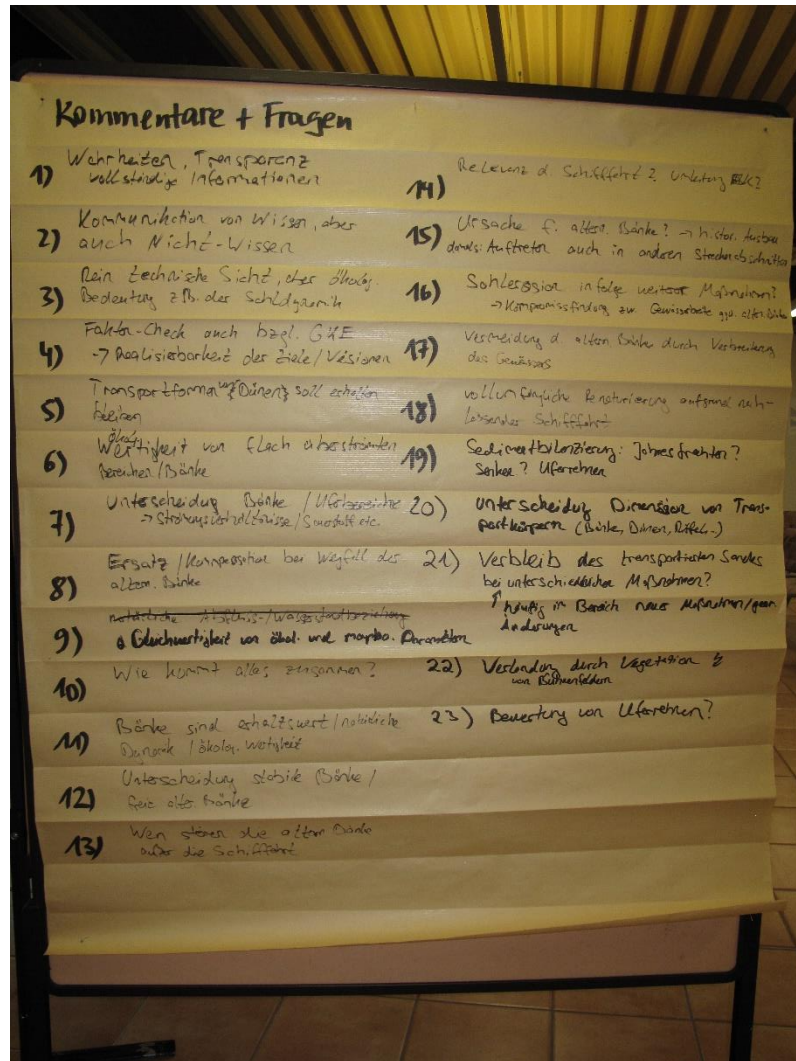 Kommentare + Fragen
1) Wahrheiten, Transparenz
vollständige Informationen
2) Kommunikation von Wissen, aber
auch Nicht-Wissen
3) Rein technische Sicht, aber ökolog.
Bedeutung z.B. der Sohldynamik
4) Fakten-Check auch bzgl. GKE
-> Realisierbarkeit der Ziele/Visionen
5) Transportformen und Dünen soll erhalten
bleiben
6) ökol. Wertigkeit von flach überströmten
Bereichen/Bänke
7) Unterscheidung Bänke / Uferbereiche
-> Strömungsverhältnisse/Sauerstoff etc.
8) Ersatz/Kompensation bei Wegfall der
altern. Bänke
9) natürliche Abfluss-/Wasserstandbeziehung
Gleichwertigkeit von ökol. und morpho. Parametern
10) Wie kommt alles zusammen?
11) Bänke sind erhaltswert/natürliche
Dynamik / ökolog. Wertigkeit
12) Unterscheidung stabile Bänke/
freie alter. Bänke
13) Wen stören die altern Bänke
außer die Schifffahrt
14) Relevanz d. Schifffahrt? Umleitung ESK?
15) Ursache f. altern. Bänke? -> histor. Ausbau
Auftreten auch in anderen Streckenabschnitten
16) Sohlerosion infolge weiterer Maßnahmen?
-> Kompromissfindung zur Gewässerbreite ggü. alter. Bänke
17) Vermeidung d. altern Bänke durch Verbreiterung
des Gewässers
18) vollumfängliche Renaturierung aufgrund nach-
lassender Schifffahrt
19) Sedimentbilanzierung: Jahresfrachten?
Senken? Uferrehnen
20) Unterscheidung Dimension von Trans-
portkörpern (Bänke, Dünen, Riffel..)
21) Verbleib des transportierten Sandes
bei unterschiedlichen Maßnahmen?
häufig im Bereich neuer Maßnahmen/geom.
Änderungen
22) Verlandung durch Vegetation
von Buhnenfeldern
23) Bewertung von Uferrehnen?